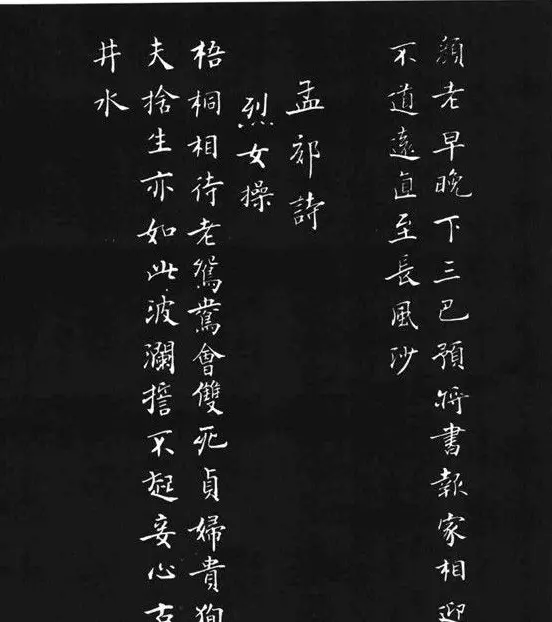 顏老早晚下三巴預將書報家相迎
不道遠直至長風沙
孟郊詩
烈女操
梧桐相待老鴛鴦會雙死貞婦貴狥
夫捨生亦如此波瀾誓不起妾心古
井水